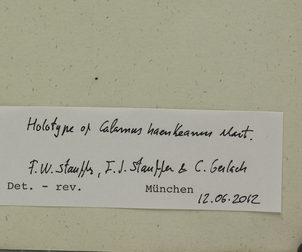 Holotype of Calamus haenkeanus Mart.
F.W. Stauffer, F.J. Stauffer & C. Gerlach
Det. - rev. München
12.06.2012